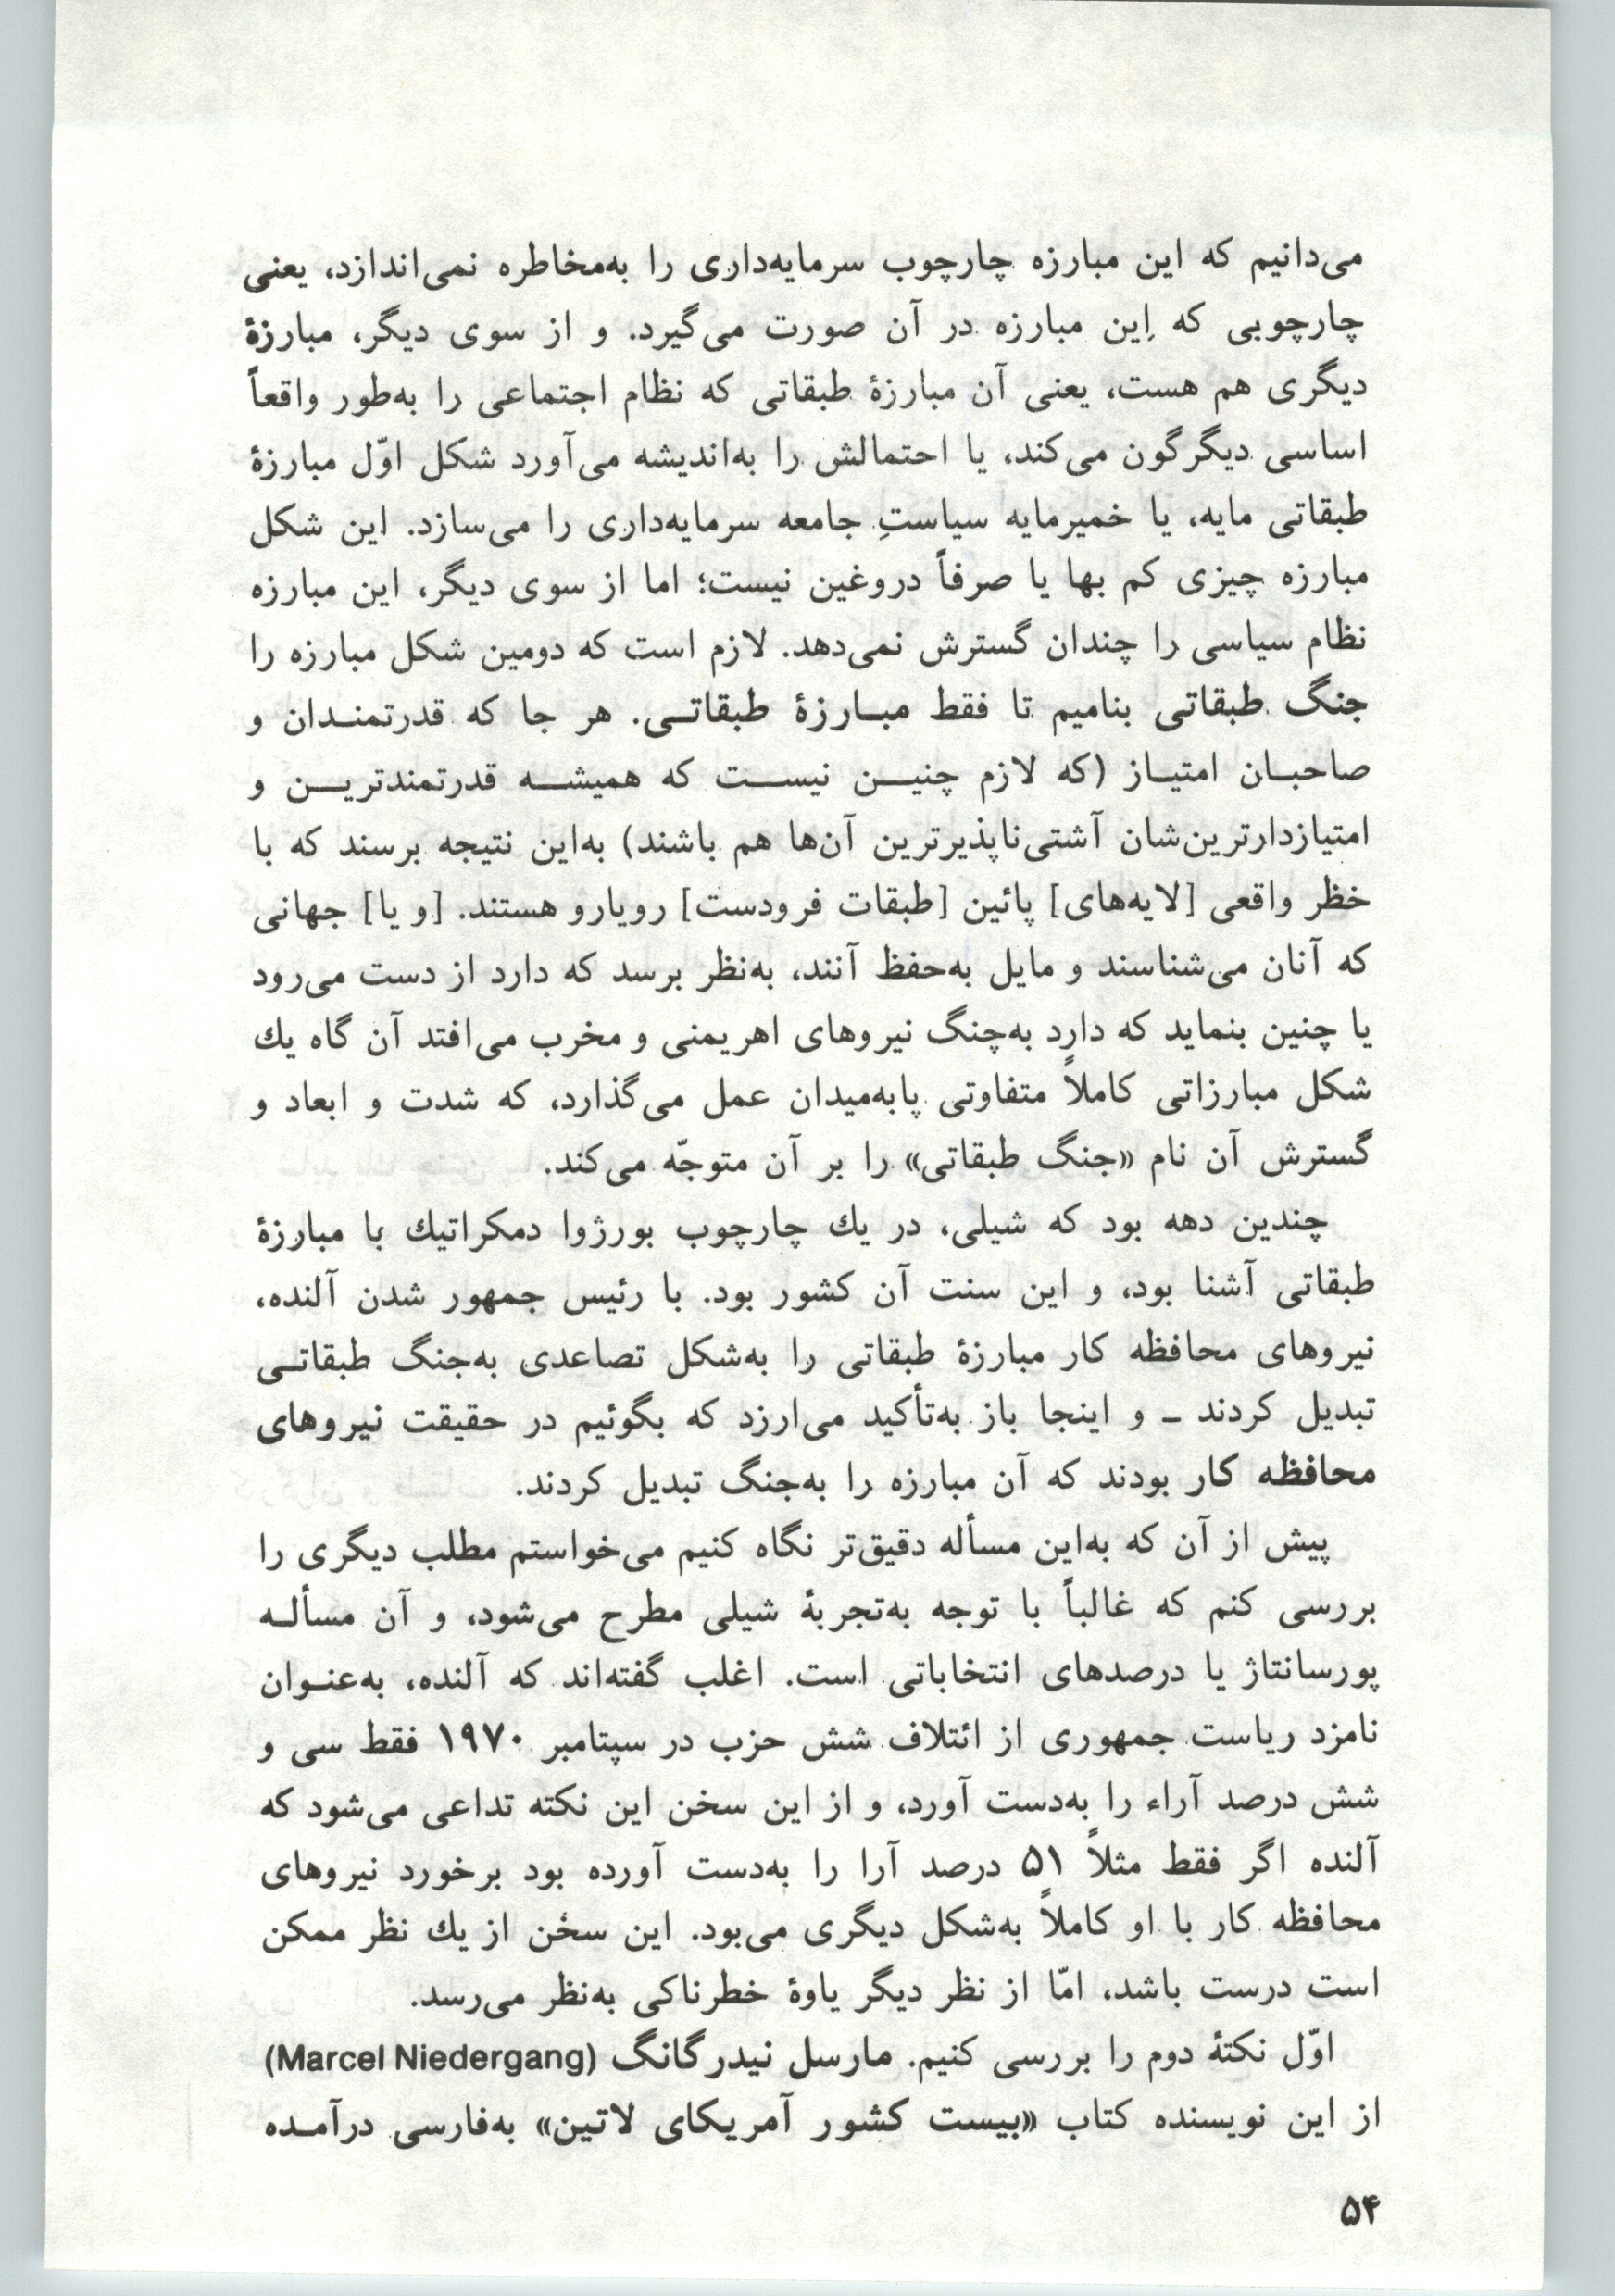 می‌دانیم که این مبارزه چارچوب سرمایه‌داری را به‌مخاطره نمی‌اندازد، یعنی
چارچوبی که اِین مبارزه در آن صورت می‌گیرد. و از سوی دیگر، مبارزهٔ
دیگری هم هست، یعنی آن مبارزهٔ طبقاتی که نظام اجتماعی را به‌طور واقعاً
اساسی دیگرگون می‌کند، یا احتمالش را به‌اندیشه می‌آورد شکل اوّل مبارزهٔ
طبقاتی مایه، یا خمیرمایه سیاستِ جامعه سرمایه‌داری را می‌سازد. این شکل
مبارزه چیزی کم بها یا صرفاً دروغین نیست؛ اما از سوی دیگر، این مبارزه
نظام سیاسی را چندان گسترش نمی‌دهد. لازم است که دومین شکل مبارزه را
جنگ طبقاتی بنامیم تا فقط مبـارزهٔ طبقاتـی. هر جا که قدرتمنـدان و
صاحبـان امتیـاز (که لازم چنیـن نیسـت که همیشـه قدرتمندتریـن و
امتیازدارترین‌شان آشتی‌ناپذیرترین آن‌ها هم باشند) به‌این نتیجه برسند که با
خظر واقعی [لایه‌های] پائین [طبقات فرودست] رویارو هستند. [و یا] جهانی
که آنان می‌شناسند و مایل به‌حفظ آنند، به‌نظر برسد که دارد از دست می‌رود
یا چنین بنماید که دارد به‌چنگ نیروهای اهریمنی و مخرب می‌افتد آن گاه یك
شکل مبارزاتی کاملاً متفاوتی پابه‌میدان عمل می‌گذارد، که شدت و ابعاد و
گسترش آن نام «جنگ طبقاتی» را بر آن متوجّه می‌کند.
چندین دهه بود که شیلی، در یك چارچوب بورژوا دمکراتیك با مبارزهٔ
طبقاتی آشنا بود، و این سنت آن کشور بود. با رئیس جمهور شدن آلنده،
نیروهای محافظه کار مبارزهٔ طبقاتی را به‌شکل تصاعدی به‌جنگ طبقاتـی
تبدیل کردند ـ و اینجا باز به‌تأکید می‌ارزد که بگوئیم در حقیقت نیروهای
محافظه کار بودند که آن مبارزه را به‌جنگ تبدیل کردند.
پیش از آن که به‌این مسأله دقیق‌تر نگاه کنیم می‌خواستم مطلب دیگری را
بررسی کنم که غالباً با توجه به‌تجربهٔ شیلی مطرح می‌شود، و آن مسألـه
پورسانتاژ یا درصدهای انتخاباتی است. اغلب گفته‌اند که آلنده، به‌عنـوان
نامزد ریاست جمهوری از ائتلاف شش حزب در سپتامبر ۱۹۷۰ فقط سی و
شش درصد آراء را به‌دست آورد، و از این سخن این نکته تداعی می‌شود که
آلنده اگر فقط مثلاً ۵۱ درصد آرا را به‌دست آورده بود برخورد نیروهای
محافظه کار با او کاملاً به‌شکل دیگری می‌بود. این سخن از یك نظر ممکن
است درست باشد، امّا از نظر دیگر یاوهٔ خطرناکی به‌نظر می‌رسد.
اوّل نکتهٔ دوم را بررسی کنیم. مارسل نیدرگانگ (Marcel Niedergang)
از این نویسنده کتاب «بیست کشور آمریکای لاتین» به‌فارسی درآمـده
۵۴